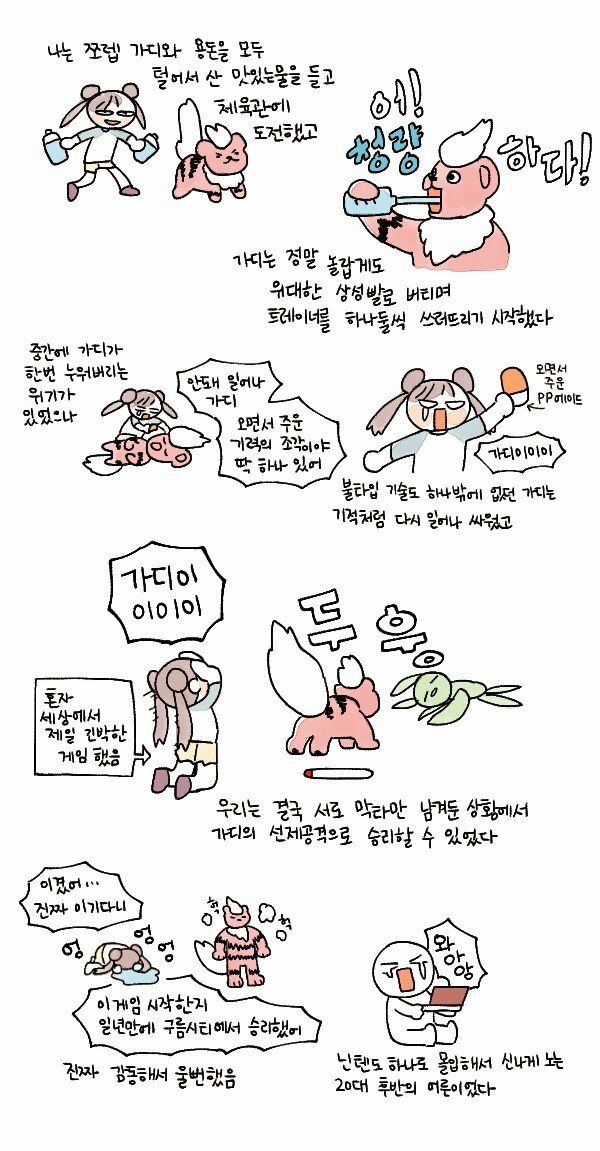 나는 쪼렙 가디와 용돈을 모두
털어서 산 맛있는물을 들고
체육관에
도전했고
어!
청량
하다!
가디는 정말 놀랍게도
위대한 상성빨로 버티며
트레이너를 하나둘씩 쓰러뜨리기 시작했다
중간에 가디가
한번 누워버리는
위기가
있었으나
안돼 일어나
가디
오면서 주운
기력의 조각이야
딱 하나 있어
오면서
주운
PP에이드
가디이이이
불타입 기술도 하나밖에 없던 가디는
기적처럼 다시 일어나 싸웠고
가디이
이이이이
두웅
혼자
세상에서
제일 긴박한
게임 했음
우리는 결국 서로 막타만 남겨둔 상황에서
가디의 선제공격으로 승리할 수 있었다
이겼어...
진짜 이기다니
엉
엉엉
헉
헉
이게임 시작한지
일년만에 구름시티에서 승리했어
진짜 감동해서 울뻔했음
와
아
앙
닌텐도 하나로 몰입해서 신나게 노는
20대 후반의 어른이었다